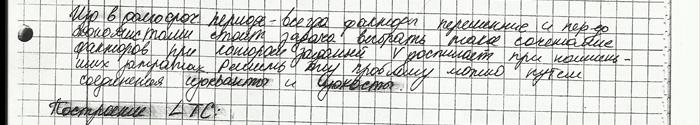 что в долгосроч периоде - всегда факторы переменные и пер-до
экономистами стоит задача выбрать такое сочетание
факторов при котором заданный V достигает при наименьш-
иших затратах Решить эту проблему можно путем
соединения изокванты и изокосты.
Построение LTC: